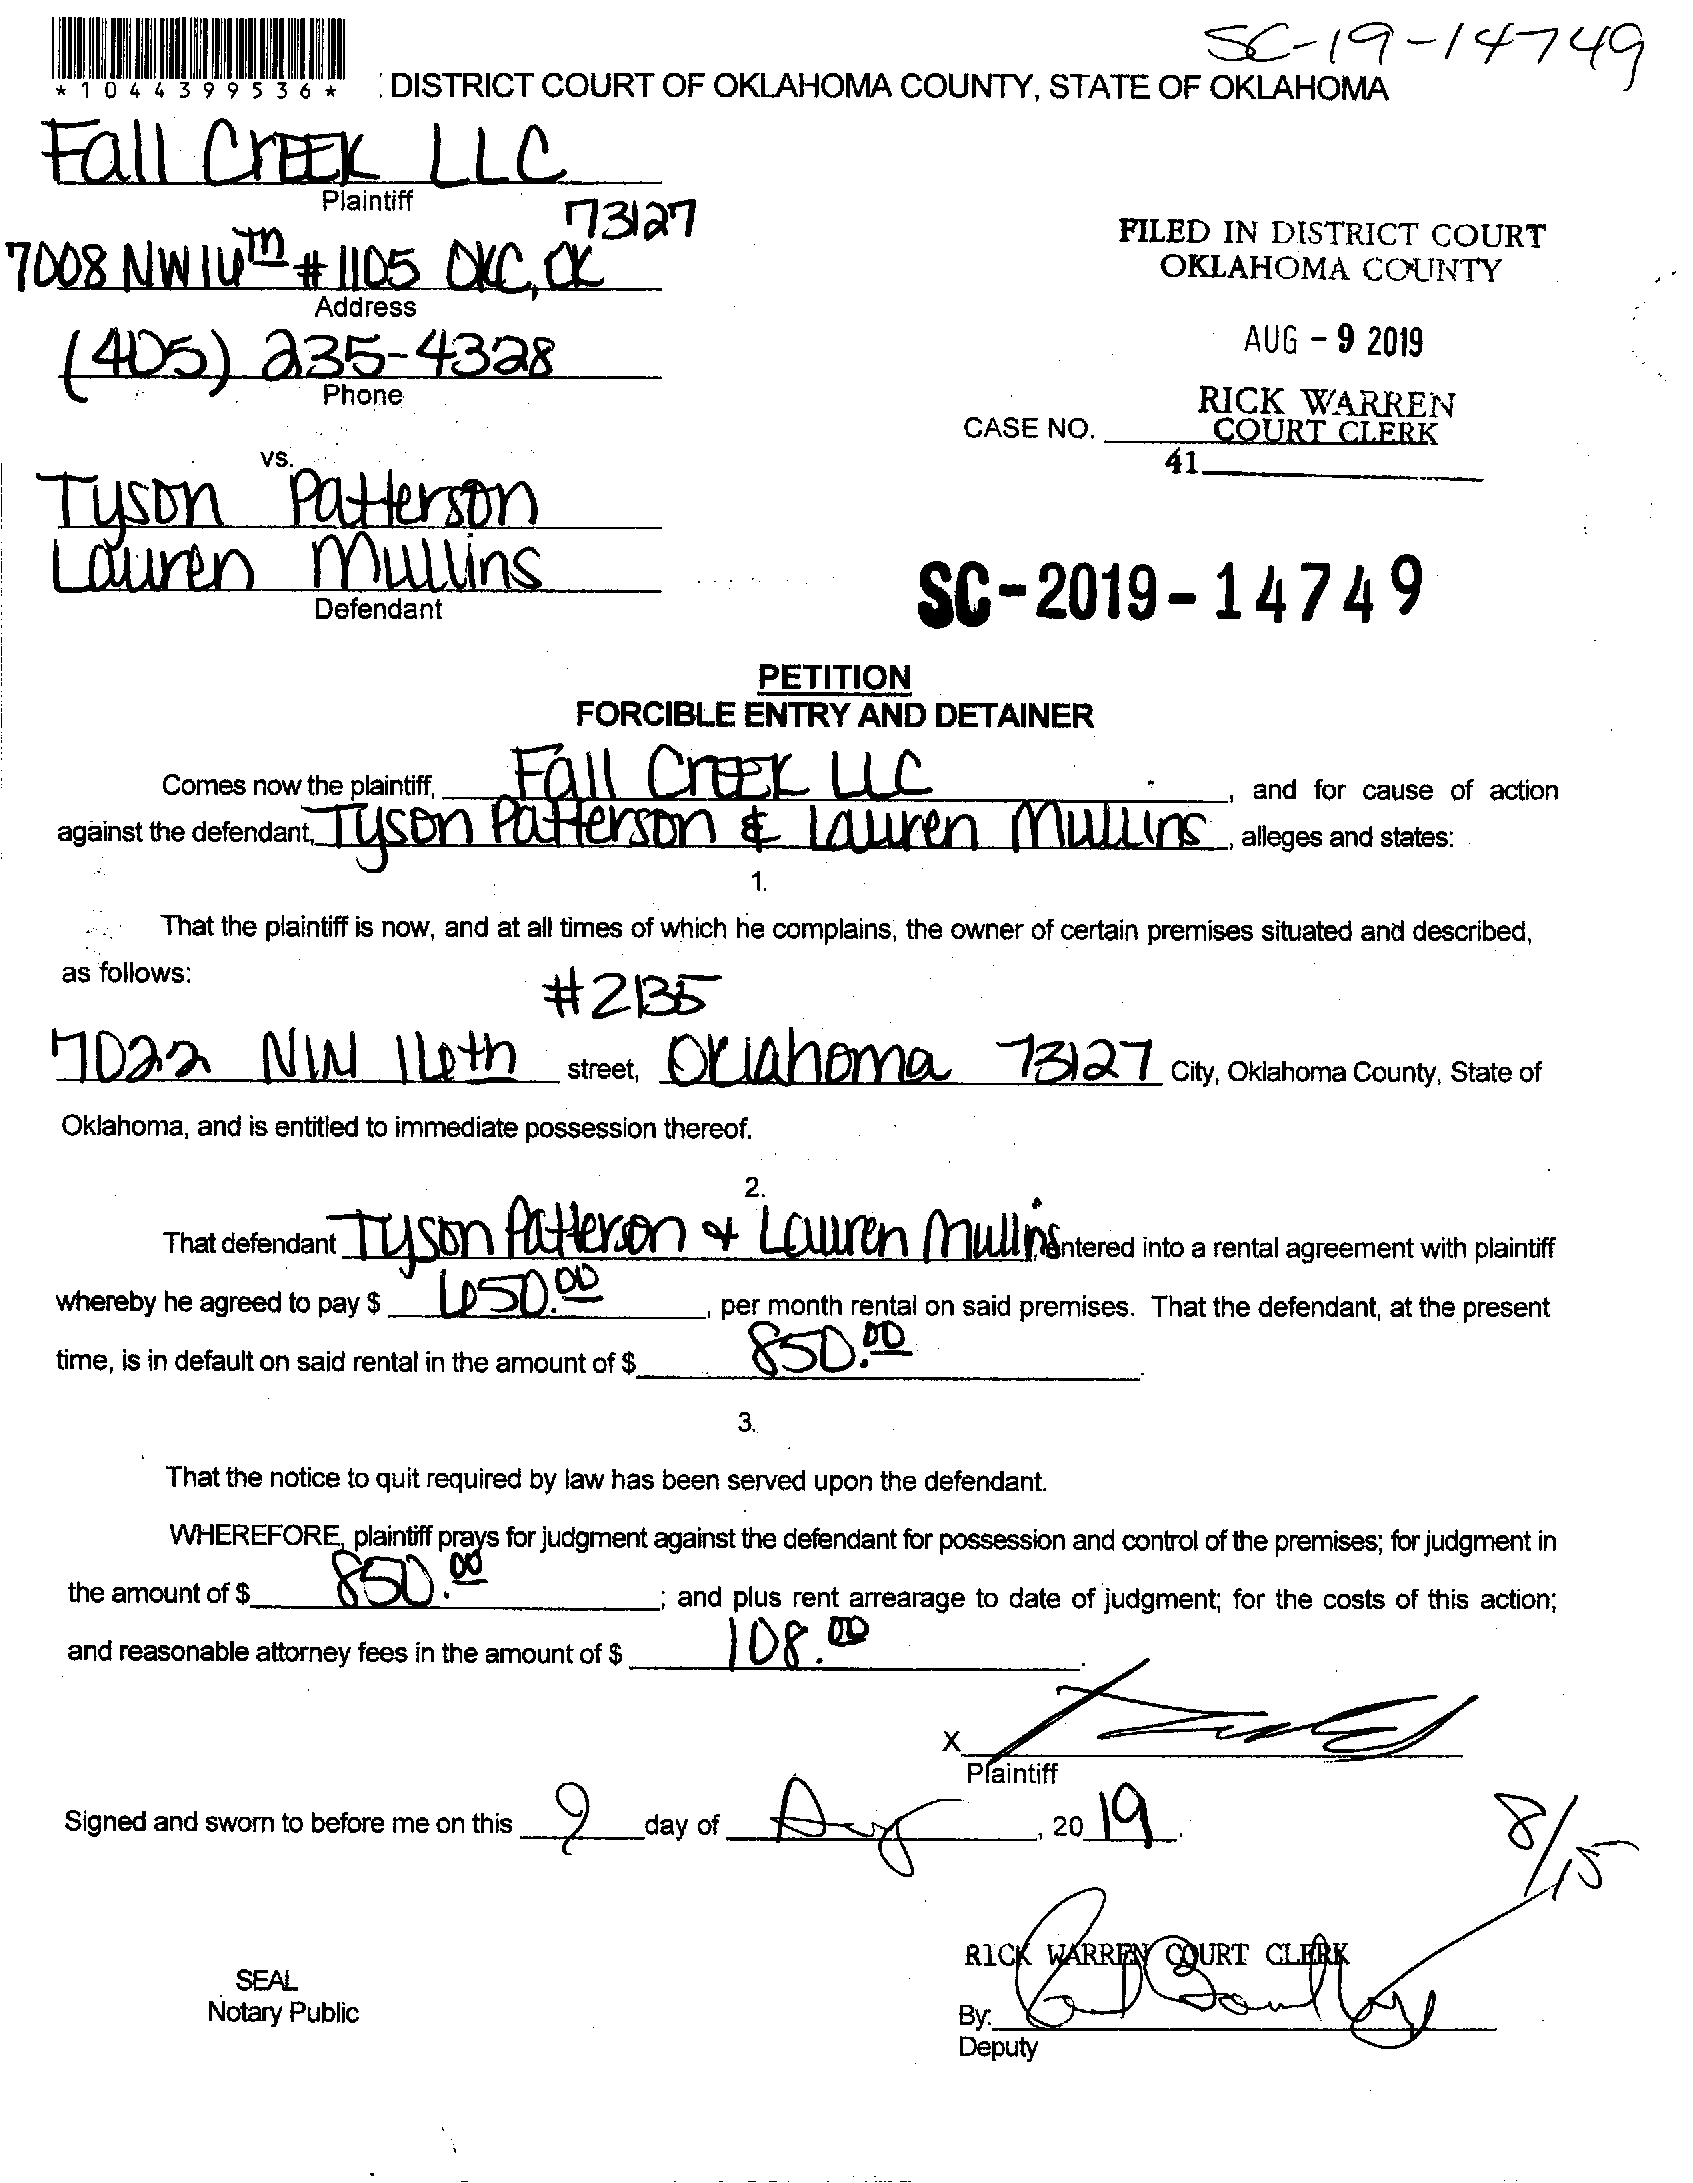 SC-19-14749
*1044399536*
: DISTRICT COURT OF OKLAHOMA COUNTY, STATE OF OKLAHOMA
Fall Creek LLC
Plaintiff
73127
7008 NW 16th #1105 OKC, OK
Address
(405) 235-4328
Phone
FILED IN DISTRICT COURT
OKLAHOMA COUNTY
AUG - 9 2019
RICK WARREN
COURT CLERK
CASE NO.
41
vs.
Tyson Patterson
Lauren Mullins
Defendant
SC-2019-14749
PETITION
FORCIBLE ENTRY AND DETAINER
Comes now the plaintiff, Fall Creek LLC, and for cause of action
against the defendant, Tyson Patterson & Lauren Mullins, alleges and states:
1.
That the plaintiff is now, and at all times of which he complains, the owner of certain premises situated and described,
as follows:
#2135
7022 NW 16th street, Oklahoma 73127 City, Oklahoma County, State of
Oklahoma, and is entitled to immediate possession thereof.
2.
That defendant Tyson Patterson & Lauren Mullins, entered into a rental agreement with plaintiff
whereby he agreed to pay $ 650.00, per month rental on said premises. That the defendant, at the present
time, is in default on said rental in the amount of $ 850.00.
3.
That the notice to quit required by law has been served upon the defendant.
WHEREFORE, plaintiff prays for judgment against the defendant for possession and control of the premises; for judgment in
the amount of $ 850.00; and plus rent arrearage to date of judgment; for the costs of this action;
and reasonable attorney fees in the amount of $ 108.00.
X
Plaintiff
Signed and sworn to before me on this 9 day of Aug, 2019.
8/15
RICK WARREN COURT CLERK
SEAL
Notary Public
By:
Deputy